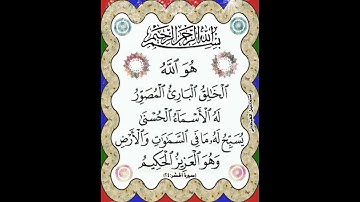 بسم الله الرحمن الرحيم
هُوَ ٱللَّهُ
ٱلْخَٰلِقُ ٱلْبَارِئُ ٱلْمُصَوِّرُ
لَهُ ٱلْأَسْمَآءُ ٱلْحُسْنَىٰ
يُسَبِّحُ لَهُۥ مَا فِى ٱلسَّمَٰوَٰتِ وَٱلْأَرْضِ
وَهُوَ ٱلْعَزِيزُ ٱلْحَكِيمُ
(سورة الحشر: ٢٤)